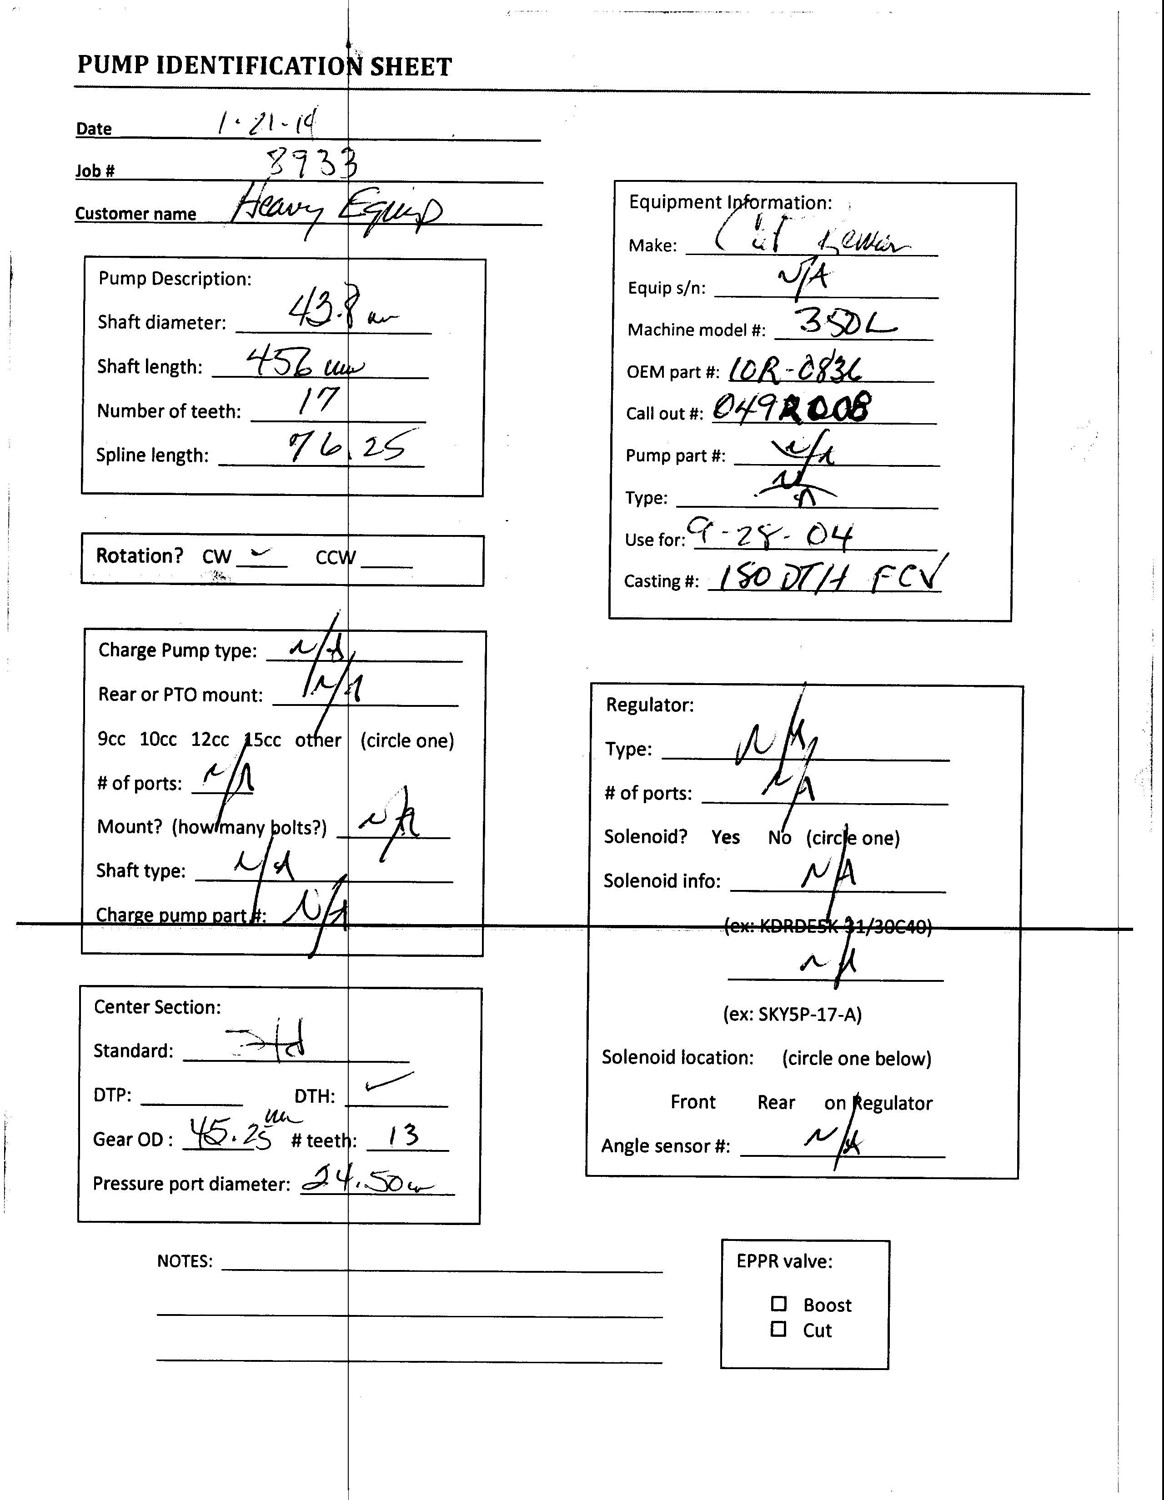 PUMP IDENTIFICATION SHEET
Date 1-21-19
Job # 8933
Customer name Heavy Equip
Pump Description:
Shaft diameter: 43.8
Shaft length: 456 mm
Number of teeth: 17
Spline length: 76.25
Rotation? CW ✓ CCW
Charge Pump type: N/A
Rear or PTO mount: N/A
9cc 10cc 12cc 15cc other (circle one)
# of ports: N/A
Mount? (how many bolts?) N/A
Shaft type: N/A
Charge pump part #: N/A
Center Section:
Standard: Std
DTP: DTH: ✓
Gear OD : 45.25 mm # teeth: 13
Pressure port diameter: 24.50
NOTES:
Equipment Information:
Make: Cat
Equip s/n: N/A
Machine model #: 350L
OEM part #: 10R-0836
Call out #: 049R008
Pump part #: N/A
Type: N/A
Use for: 9-28-04
Casting #: 180 DTH FCV
Regulator:
Type: N/A
# of ports: N/A
Solenoid? Yes No (circle one)
Solenoid info: N/A
(ex: KDRDE5K 31/30C40)
N/A
(ex: SKY5P-17-A)
Solenoid location: (circle one below)
Front Rear on Regulator
Angle sensor #: N/A
EPPR valve:
☐ Boost
☐ Cut